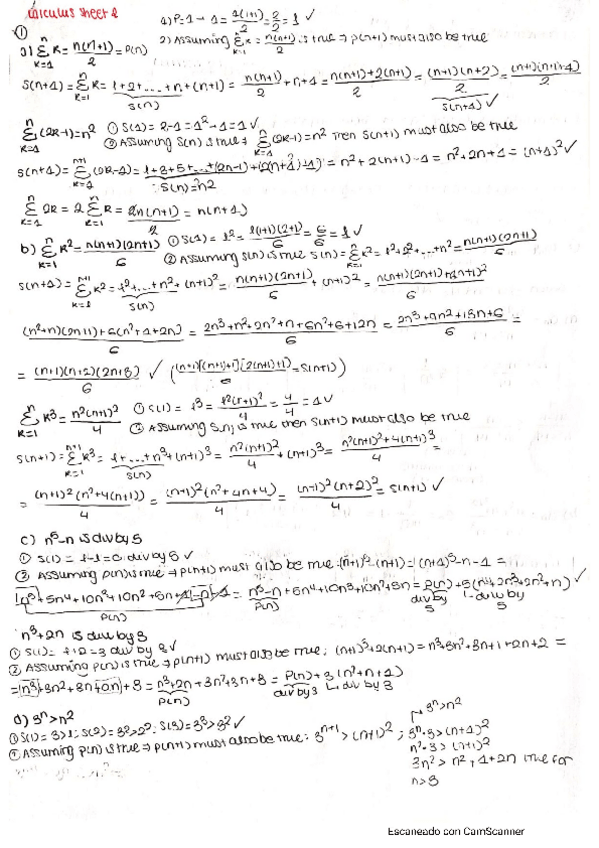 calculus sheet 2
① 1) P=1→ 1 = 1(1+1)/2 = 2/2 = 1 ✓
a) Σ_{k=1}^{n} k = n(n+1)/2 = P(n) 2) Assuming Σ_{k=1}^{n} k = n(n+1)/2 is true → p(n+1) must also be true
S(n+1) = Σ_{k=1} k = 1+2+...+n+(n+1) = n(n+1)/2 + n+1 = n(n+1)+2(n+1)/2 = (n+1)(n+2)/2 = (n+1)(n+1+1)/2
S(n) S(n+1) ✓
Σ_{k=1}^{n} (2k-1) = n² ① S(1) = 2-1 = 1² → 1 = 1 ✓
② Assuming S(n) is true Σ_{k=1}^{n} (2k-1) = n² Then S(n+1) must also be true
S(n+1) = Σ_{k=1}^{n+1} (2k-1) = 1+3+5+...+(2n-1)+(2(n+1)-1) = n²+2(n+1)-1 = n²+2n+1 = (n+1)² ✓
S(n)=n²
Σ_{k=1}^{n} 2k = 2 Σ_{k=1}^{n} k = 2n(n+1)/2 = n(n+1)
b) Σ_{k=1}^{n} k² = n(n+1)(2n+1)/6 ① S(1) = 1² = 1(1+1)(2+1)/6 = 6/6 = 1 ✓
② Assuming S(n) is true S(n) = Σ_{k=1}^{n} k² = 1²+2²+...+n² = n(n+1)(2n+1)/6
S(n+1) = Σ_{k=1}^{n+1} k² = 1²+...+n²+(n+1)² = n(n+1)(2n+1)/6 + (n+1)² = n(n+1)(2n+1)+6(n+1)²/6
S(n)
(n²+n)(2n+1)+6(n²+1+2n)/6 = 2n³+n²+2n²+n+6n²+6+12n/6 = 2n³+9n²+13n+6/6 =
= (n+1)(n+2)(2n+3)/6 ✓ ((n+1)[(n+1)+1][2(n+1)+1]/6 = S(n+1))
Σ_{k=1}^{n} k³ = n²(n+1)²/4 ① S(1) = 1³ = 1²(1+1)²/4 = 4/4 = 1 ✓
② Assuming S(n) is true then S(n+1) must also be true
S(n+1) = Σ_{k=1}^{n+1} k³ = 1+...+n³+(n+1)³ = n²(n+1)²/4 + (n+1)³ = n²(n+1)²+4(n+1)³/4 =
S(n)
= (n+1)²(n²+4(n+1))/4 = (n+1)²(n²+4n+4)/4 = (n+1)²(n+2)²/4 = S(n+1) ✓
c) n⁵-n is div by 5
① S(1) = 1-1=0 div by 5 ✓
② Assuming p(n) is true → p(n+1) must also be true: (n+1)⁵-(n+1) = (n+1)⁵-n-1 =
n⁵+5n⁴+10n³+10n²+5n+1-n-1 = n⁵-n+5n⁴+10n³+10n²+5n = p(n)+5(n⁴+2n³+2n²+n) ✓
p(n) p(n) div by 5 div by 5
n³+2n is div by 3
① S(1) = 1+2=3 div by 3 ✓
② Assuming p(n) is true → p(n+1) must also be true; (n+1)³+2(n+1) = n³+3n²+3n+1+2n+2 =
= n³+3n²+3n+2n+3 = n³+2n+3n²+3n+3 = p(n)+3(n²+n+1)
p(n) div by 3 div by 3
d) 3ⁿ>n²
① S(1) = 3>1; S(2) = 3²>2²; S(3) = 3³>3² ✓
② Assuming p(n) is true → p(n+1) must also be true: 3ⁿ⁺¹ > (n+1)²; 3ⁿ·3 > (n+1)²
3ⁿ>n²
n²·3 > (n+1)²
3n² > n²+1+2n true for
n>3
Escaneado con CamScanner